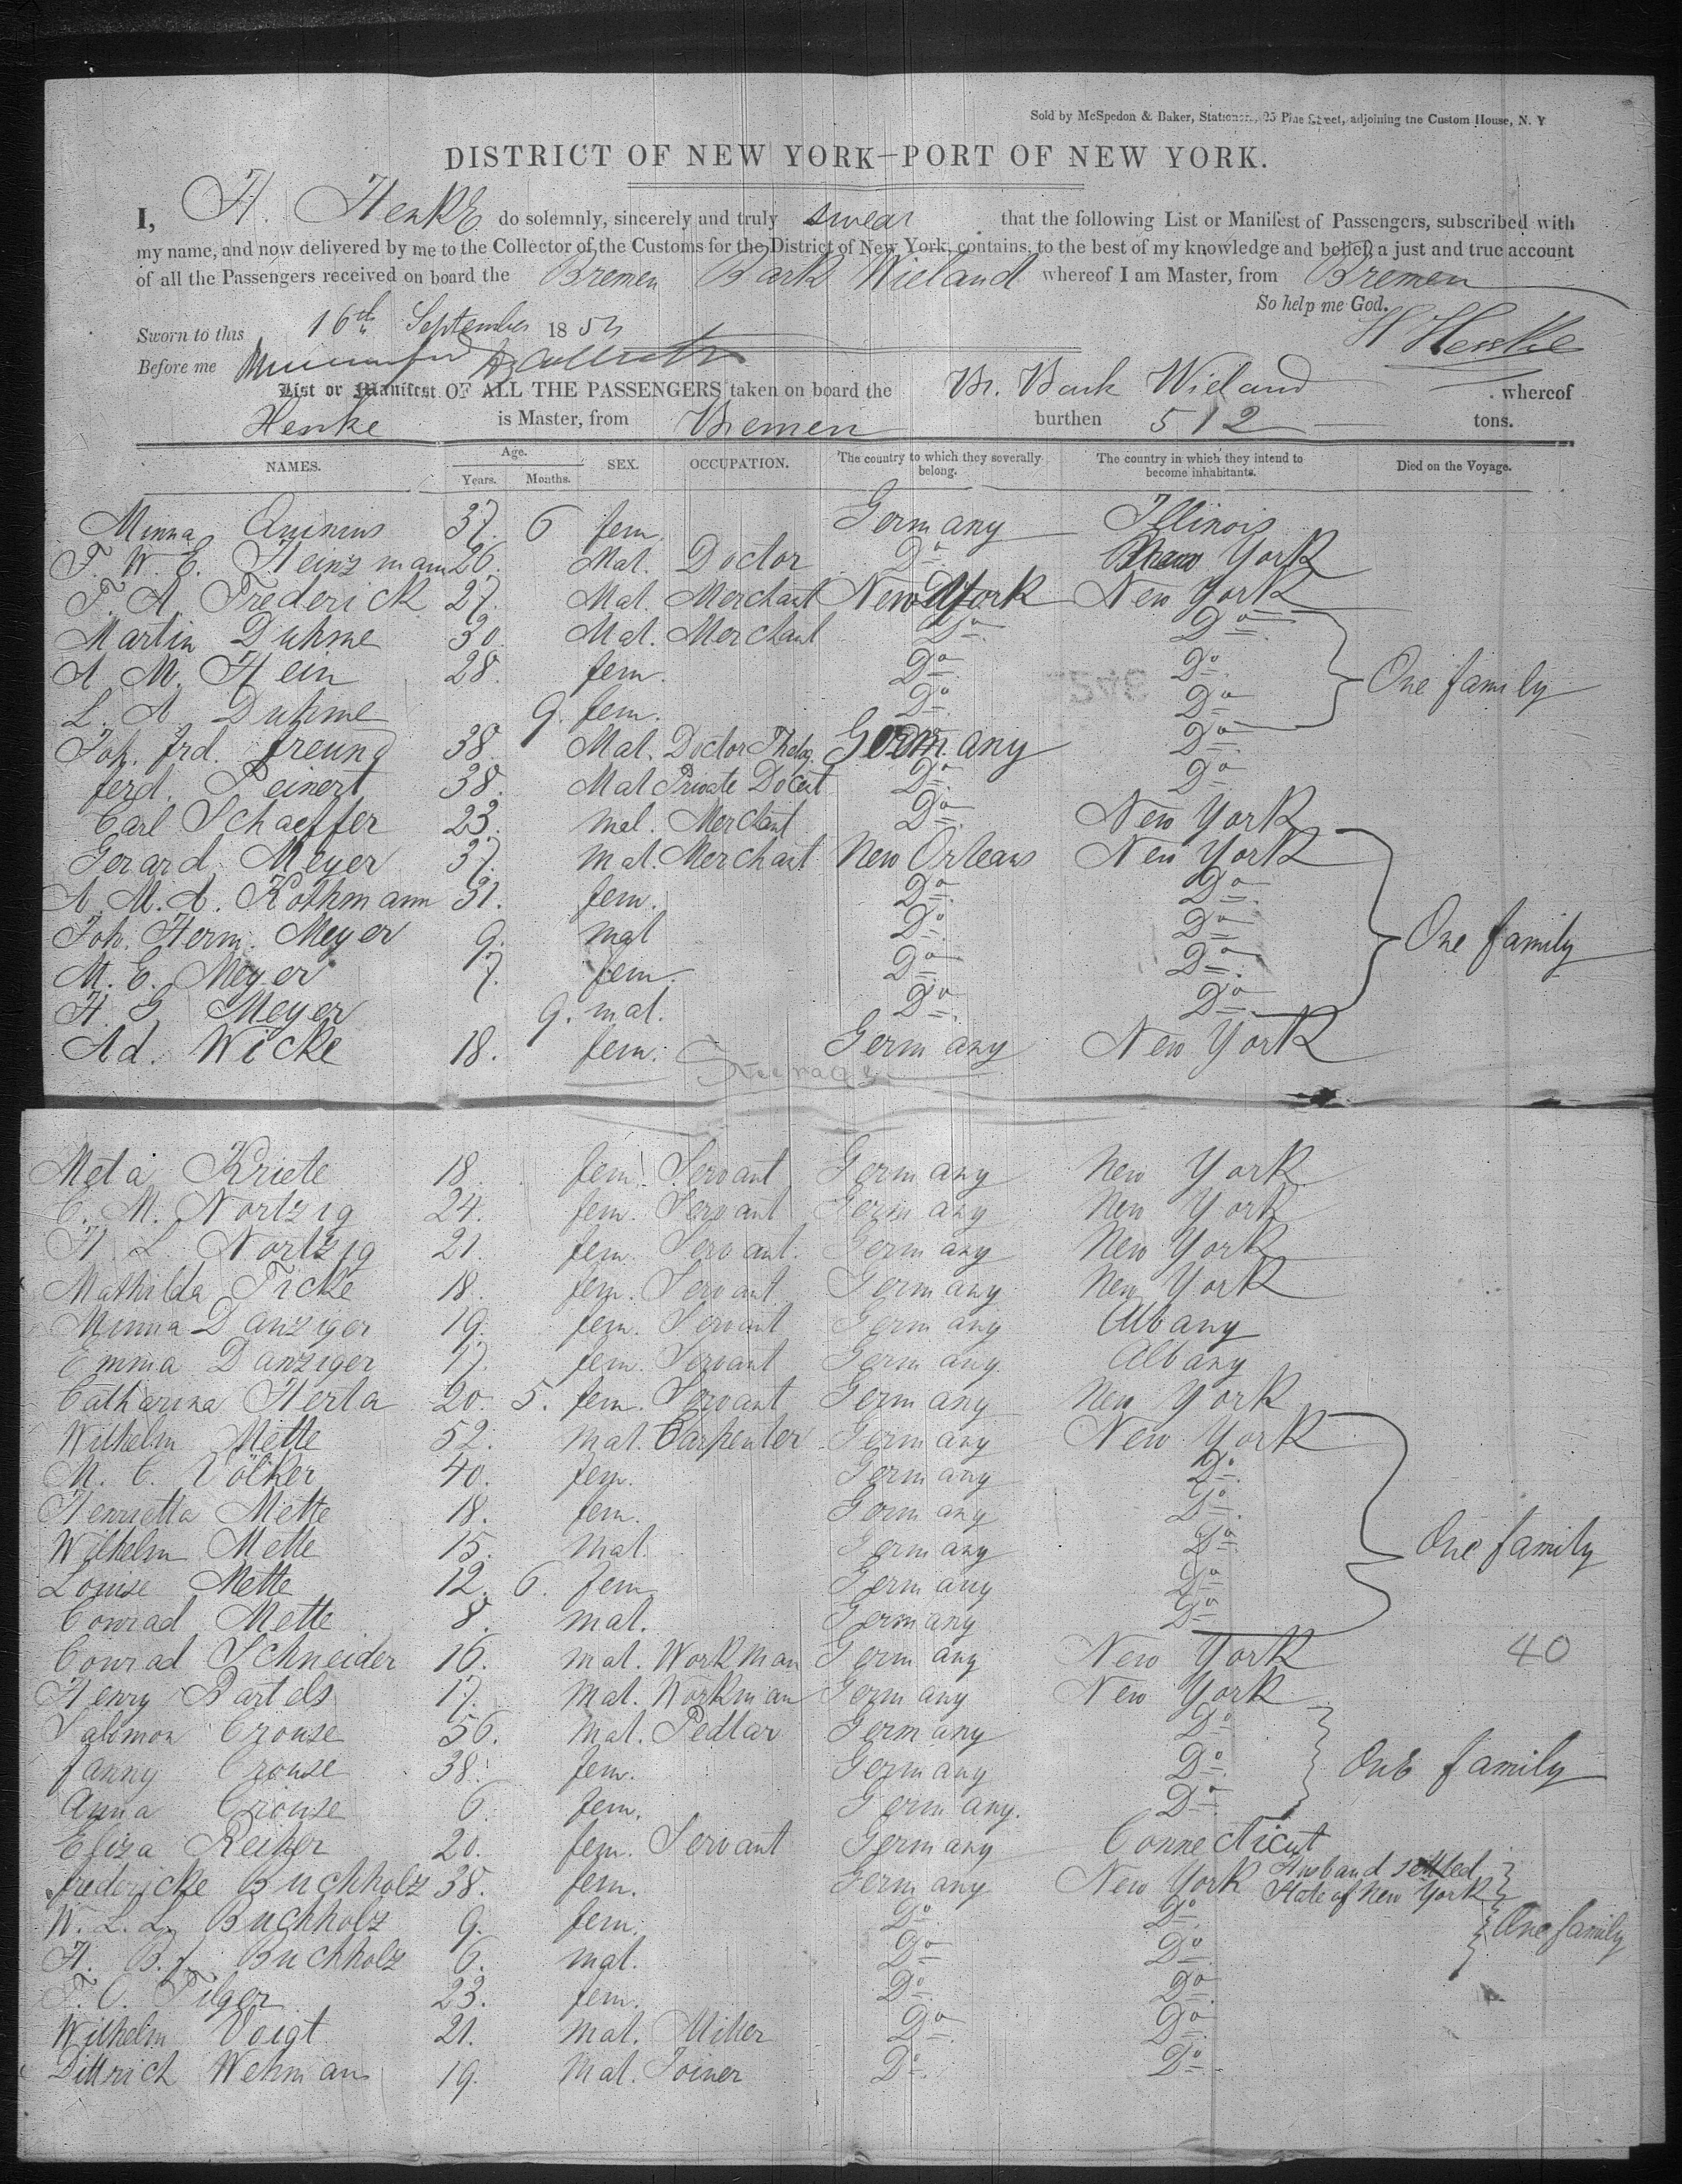 Sold by McSpedon & Baker, Stationers, 25 Pine Street, adjoining the Custom House, N. Y
DISTRICT OF NEW YORK—PORT OF NEW YORK.
I, H. Henke do solemnly, sincerely and truly swear that the following List or Manifest of Passengers, subscribed with
my name, and now delivered by me to the Collector of the Customs for the District of New York, contains, to the best of my knowledge and belief, a just and true account
of all the Passengers received on board the Bremen Bark Wieland whereof I am Master, from Bremen
So help me God.
Sworn to this 16th September 185
H Henke
Before me
List or Manifest OF ALL THE PASSENGERS taken on board the Br. Bark Wieland whereof
Henke is Master, from Bremen burthen 512 tons.
NAMES. Age. Years. Months. SEX. OCCUPATION. The country to which they severally belong. The country in which they intend to become inhabitants. Died on the Voyage.
Minna 37. 6 fem. Germany Illinois
F. W. E. Heinzmann 26. Mal. Doctor Do York
F. A. Frederick 27. Mal. Merchant New York New York
Martin Duhme 30. Mal. Merchant Do Do
A M. Hein 28. fem. Do Do One family
L. A. Duhme 9. fem. Do Do
Joh. frd. freund 38. Mal. Doctor Theolog. Germany Do
ferd. Peinert 38. Mal Private Docent Do Do
Carl Schaeffer 23. mal. Merchant Do New York
Gerard Meyer 37. mal. Merchant New Orleans New York
A. M. A. Kothmann 31. fem. Do Do
Joh. Herm. Meyer 9. mal Do Do One family
M. E. Meyer 7. fem. Do Do
H. G. Meyer 9. mal. Do Do
Ad. Wicke 18. fem. Germany New York
Steerage
Meta Kriete 18. fem. Servant Germany New York
C. M. Nortzig 24. fem. Servant Germany New York
H. L. Nortzig 21. fem. Servant. Germany New York
Mathilda Ficke 18. fem. Servant Germany New York
Minna Danziger 19. fem. Servant Germany Albany
Emma Danziger 17. fem. Servant Germany Albany
Catharina Herla 20. 5. fem. Servant Germany New York
Wilhelm Mette 52. mal. Carpenter Germany New York
M. C. Völker 40. fem. Germany Do
Henrietta Mette 18. fem. Germany Do
Wilhelm Mette 15. mal. Germany Do One family
Louise Mette 12. 6. fem Germany Do
Conrad Mette 8. mal. Germany Do
Conrad Schneider 16. mal. Workman Germany New York 40
Henry Bartels 17. mal. Workman Germany New York
Salomon Crouse 56. mal. Pedlar Germany Do
fanny Crouse 38. fem. Germany Do One family
Anna Crouse 6. fem. Germany. Do
Eliza Reiker 20. fem. Servant Germany Connecticut
fredericke Buchholz 38. fem. Germany New York Husband settled State of New York
W. L. L. Buchholz 9. fem. Do Do One family
H. B. f. Buchholz 6. mal. Do Do
F. C. Filger 23. fem. Do Do
Wilhelm Voigt 21. mal. Miller Do Do
Dittrich Wehman 19. Mal. Joiner Do Do